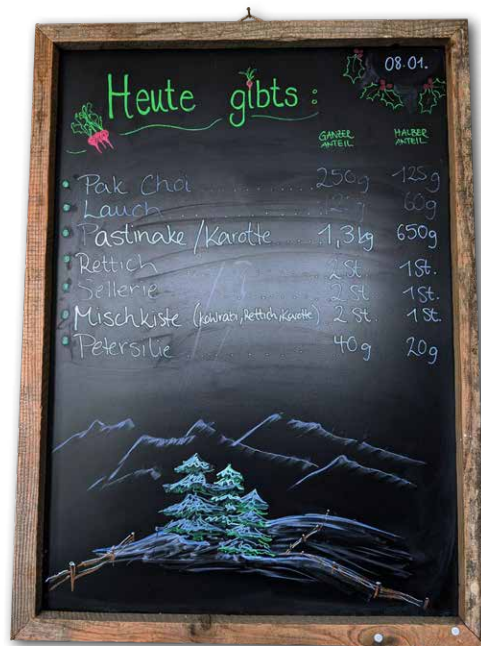 08.01.
Heute gibts :
GANZER ANTEIL HALBER ANTEIL
Pak Choi 250g 125g
Lauch 60g
Pastinake / Karotte 1,3 kg 650g
Rettich 2 St. 1 St.
Sellerie 2 St. 1 St.
Mischkiste (Kohlrabi, Rettich, Karotte) 2 St. 1 St.
Petersilie 40g 20g